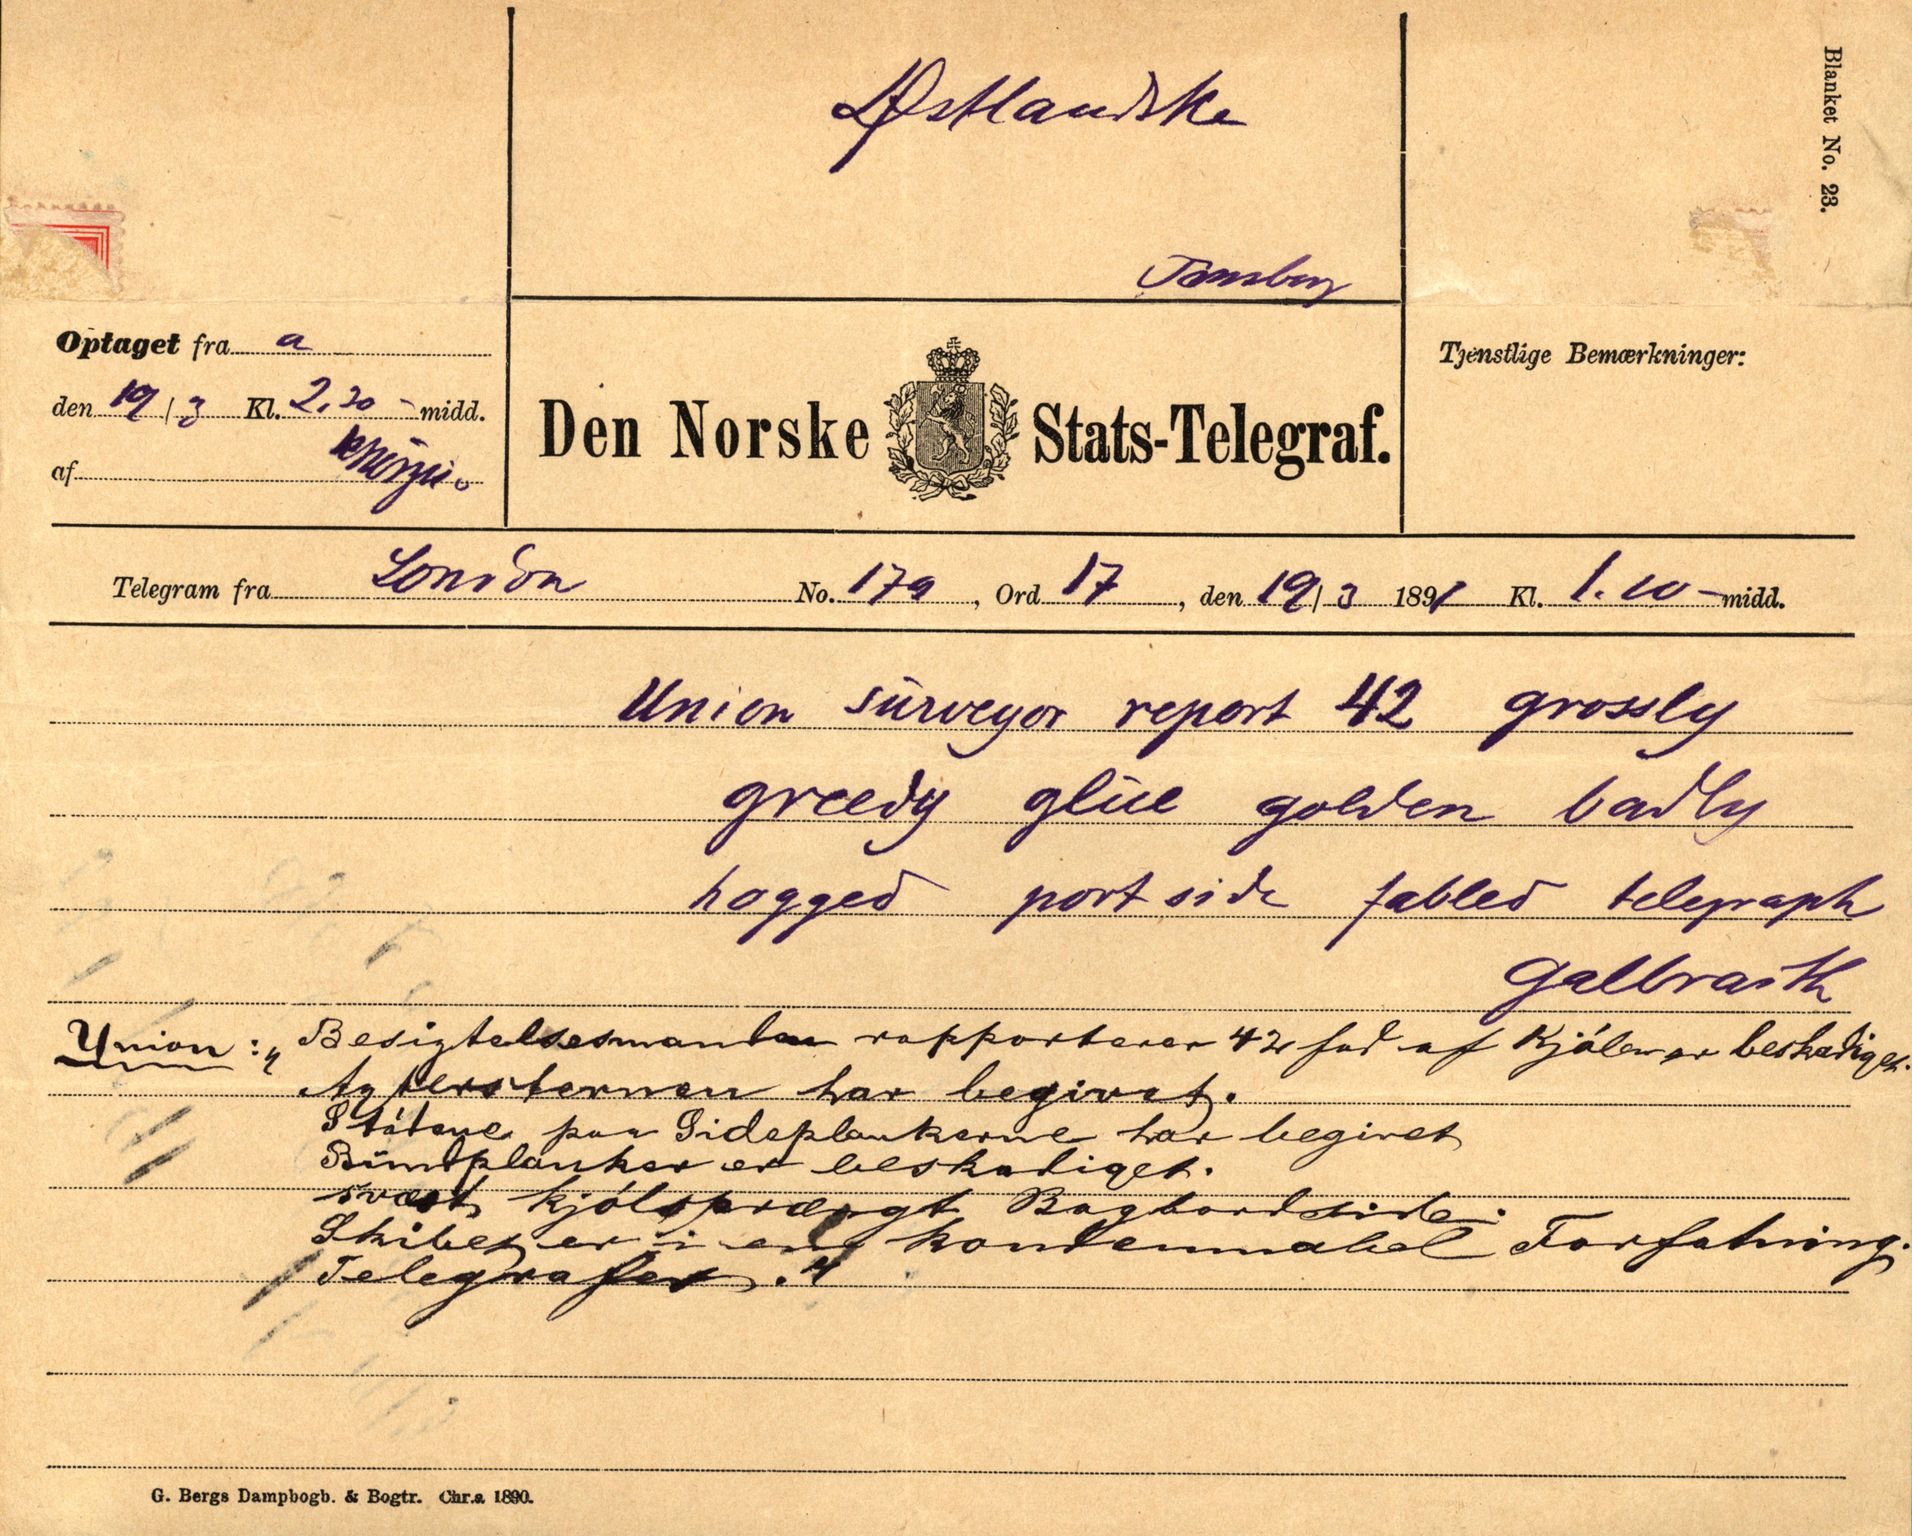 Østlandske
Tønsberg
Blanket No. 23.
Optaget fra a
den 19/3 Kl. 2.20 - midd.
af
Den Norske Stats-Telegraf.
Tjenstlige Bemærkninger:
Telegram fra London No. 179, Ord 17, den 19/3 1891 Kl. 1.10 - midd.
Union surveyor report 42 grossly
greedy glue golden badly
hogged port side fabled telegraph
Galbraith
Union: "Besigtelsesmanden rapporterer 42 fod af Kjölen er beskadiget.
Agtersternen har begivet.
Stötene paa Sideplankerne har begivet
Bundplanker er beskadiget.
svært kjölsprængt Bagbordside.
Skibet er i en kondemnabel Forfatning.
Telegrafer."
G. Bergs Dampbogb. & Bogtr. Chr.a 1890.